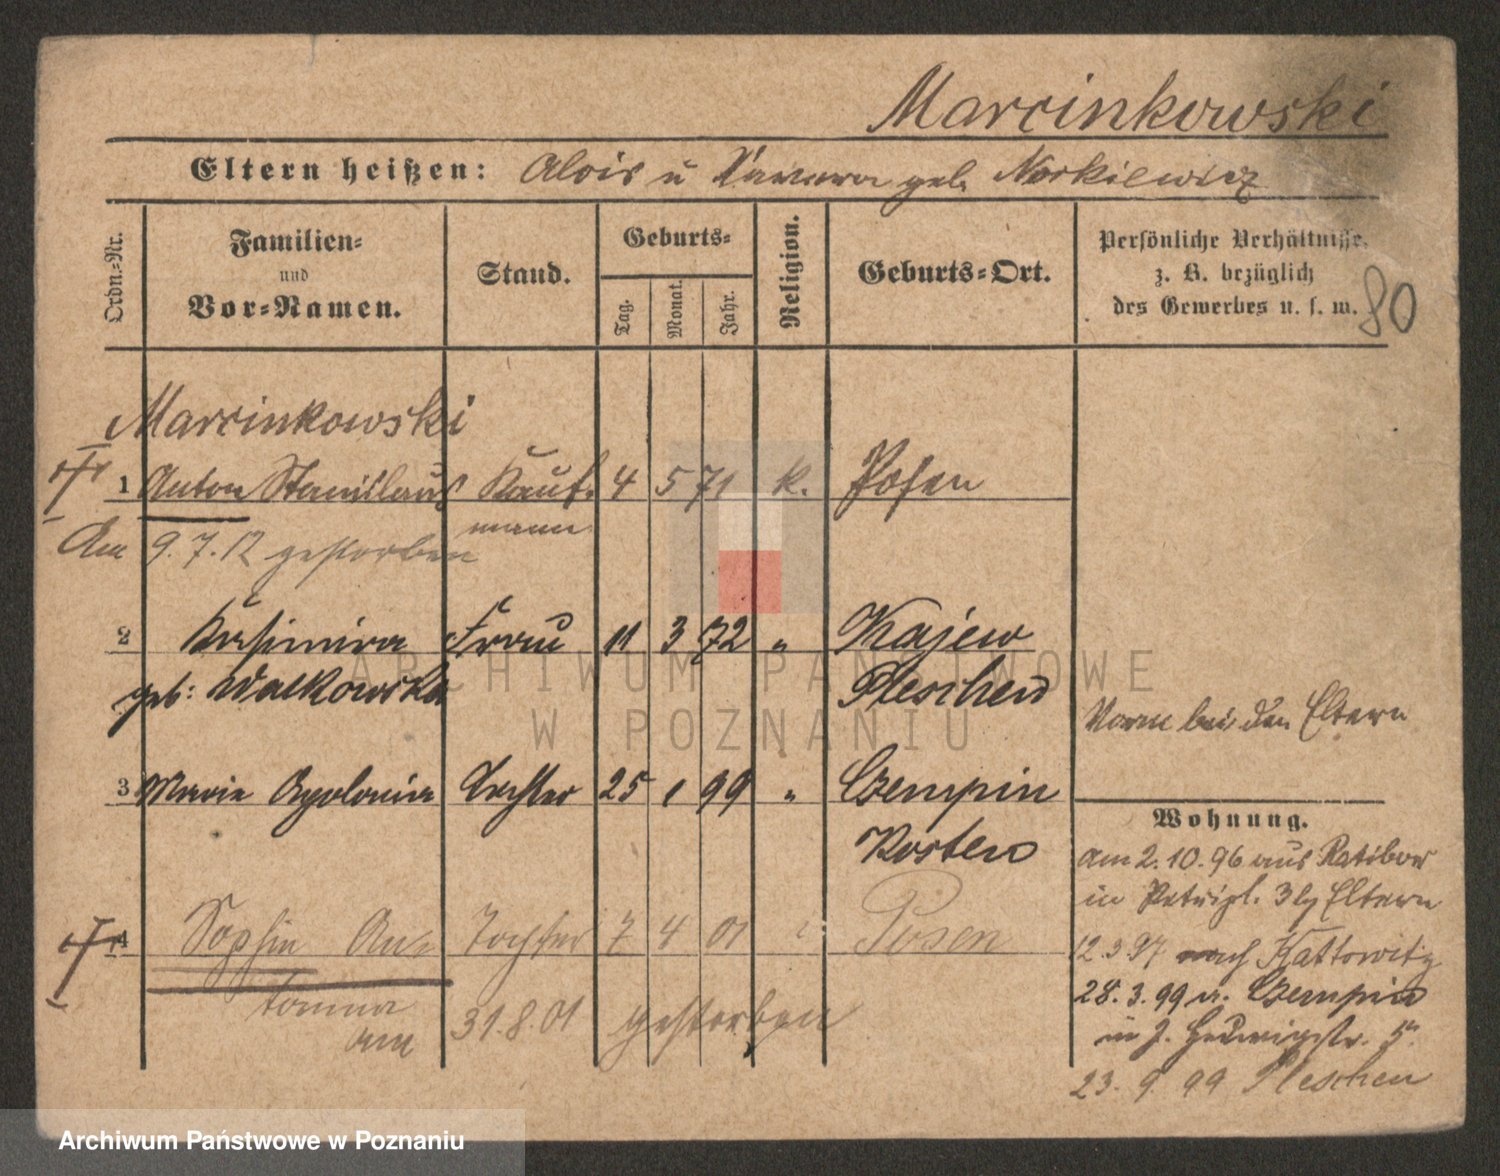 Marcinkowski
Eltern heißen: Alois u geb. Norkiewicz
Ordn.-Nr.
Familien-
und
Vor-Namen.
Stand.
Geburts-
Tag.
Monat.
Jahr.
Religion.
Geburts-Ort.
Persönliche Verhältnisse,
z. B. bezüglich
des Gewerbes u. s. w.
80
Marcinkowski
1 Anton Stanislaus Kauf- 4 5 71 k. Posen
mann
Am 9.7.12 gestorben
2 Kasimira Frau 11 3 72 " Kajew
geb: Walkowska Pleschen
3 Marie Apolonia Tochter 25 1 99 " Czempin
Kosten
4 Sophie An- Tochter 7 4 01 " Posen
tonina
am 31.8.01 gestorben
bei den Eltern
Wohnung.
am 2.10.96 aus Ratibor
in Petripl. 3 Eltern
12.3.97 nach Kattowitz
28.3.99 v. Czempin
in J. Hedwigstr. 5
23.9.99 Pleschen
ARCHIWUM PAŃSTWOWE
W POZNANIU
Archiwum Państwowe w Poznaniu